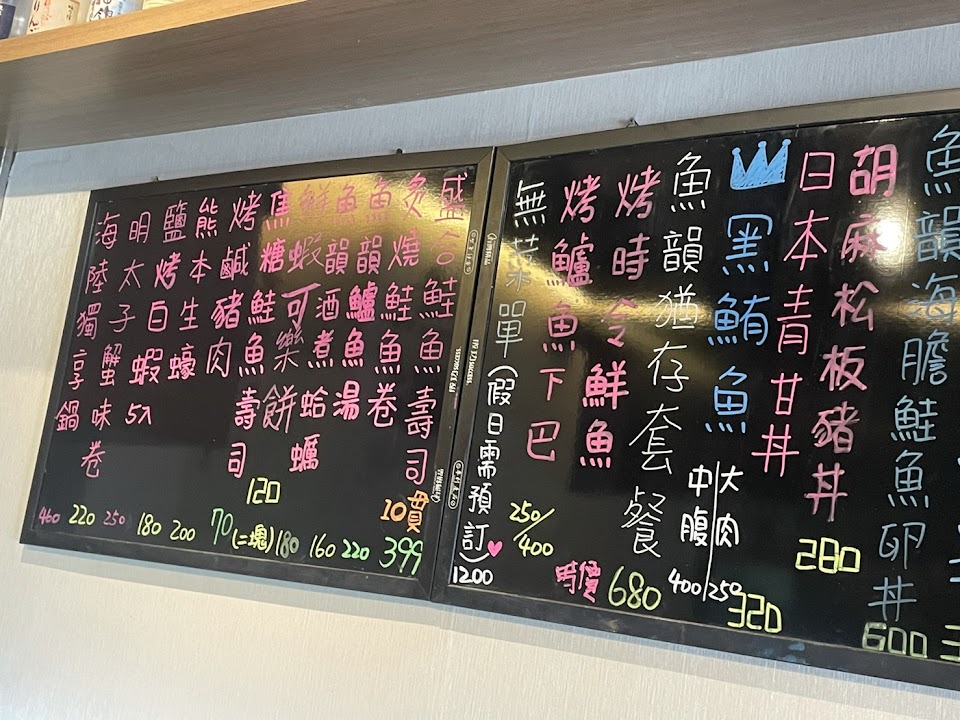 魚韻海膽鮭魚卵丼
600
胡麻松板豬丼
280
日本青甘丼
320
黑鮪魚
大肉
250
中腹
400
魚韻猶存套餐
680
烤時令鮮魚
時價
烤鱸魚下巴
250/400
無菜單(假日需預訂)
1200
盛合鮭魚壽司
10貫
399
炙燒鮭魚卷
220
魚韻鱸魚湯
160
魚韻酒煮蛤蠣
180
鮮蝦可樂餅
70(二塊)
焦糖鮭魚壽司
120
烤鹹豬肉
200
熊本生蠔
180
鹽烤白蝦5入
250
明太子蟹味卷
220
海陸獨享鍋
460